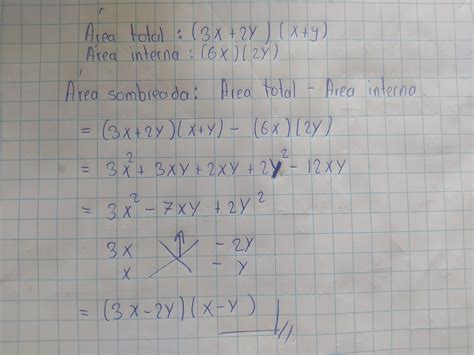 Área total : (3x+2y)(x+y)
Área interna : (6x)(2y)
Área sombreada: Área total - Área interna.
= (3x+2y)(x+y) - (6x)(2y)
= 3x² + 3xy + 2xy + 2y² - 12xy
= 3x² - 7xy + 2y²
3x - 2y
x - y
= (3x-2y)(x-y)